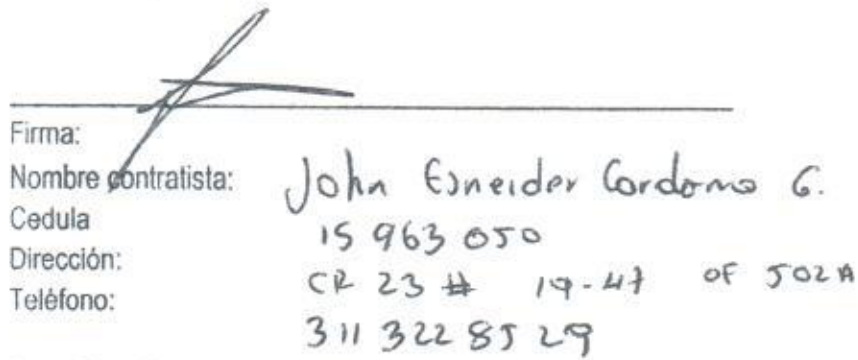 Firma:
Nombre contratista: John Esneider Cardona G.
Cedula 15 963 050
Dirección: CR 23 # 19-47 OF 502A
Teléfono: 311 322 85 29